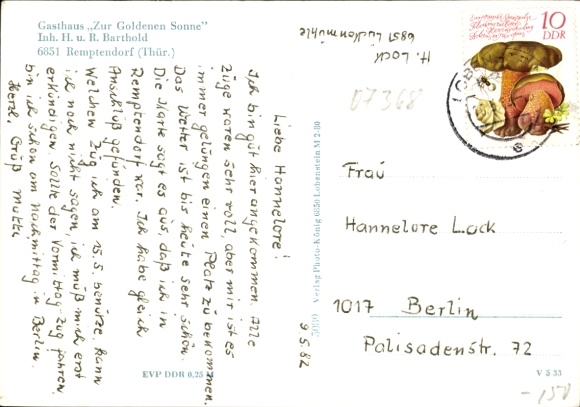 Gasthaus „Zur Goldenen Sonne"
Inh. H. u. R. Barthold
6851 Remptendorf (Thür.)
H. Lock
6851 Lückenmühle
07368
10
DDR
9.5.82
Liebe Hannelore!
Ich bin gut hier angekommen. Alle
Züge waren sehr voll, aber mir ist es
immer gelungen einen Platz zu bekommen.
Das Wetter ist bis heute sehr schön.
Die Karte sagt es aus, daß ich in
Remptendorf war. Ich habe gleich
Anschluß gefunden.
Welchen Zug ich am 15.5. benütze, kann
ich noch nicht sagen, ich muß mich erst
erkundigen. Sollte der Vormittag-Zug fahren,
bin ich schon am Nachmittag in Berlin.
Herzl. Grüß Mutti
Verlag Photo-König 6850 Lobenstein M 2-80
Frau
Hannelore Lock
1017 Berlin
Palisadenstr. 72
EVP DDR 0,25
V 5 33
-150